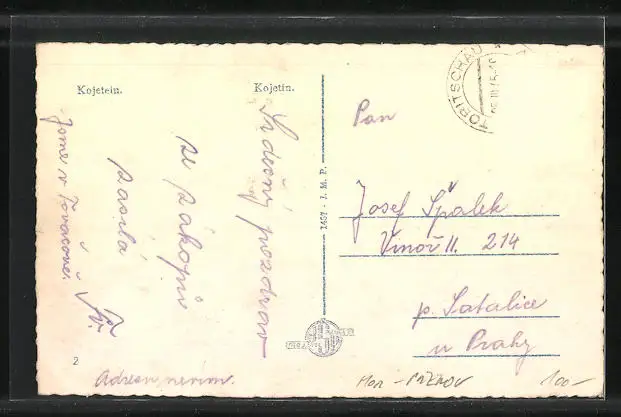 Kojetein.
Kojetín.
Srdečný pozdrav
ze zákopů
zasílá
Jsme v Tovačově.
2
Adresu nevím.
1457 - J. M. P.
TOBITSCHAU
Pan
Josef Špalek
Vinoř II. 214
p. Satalice
u Prahy
Mor - PŘEROV
100-